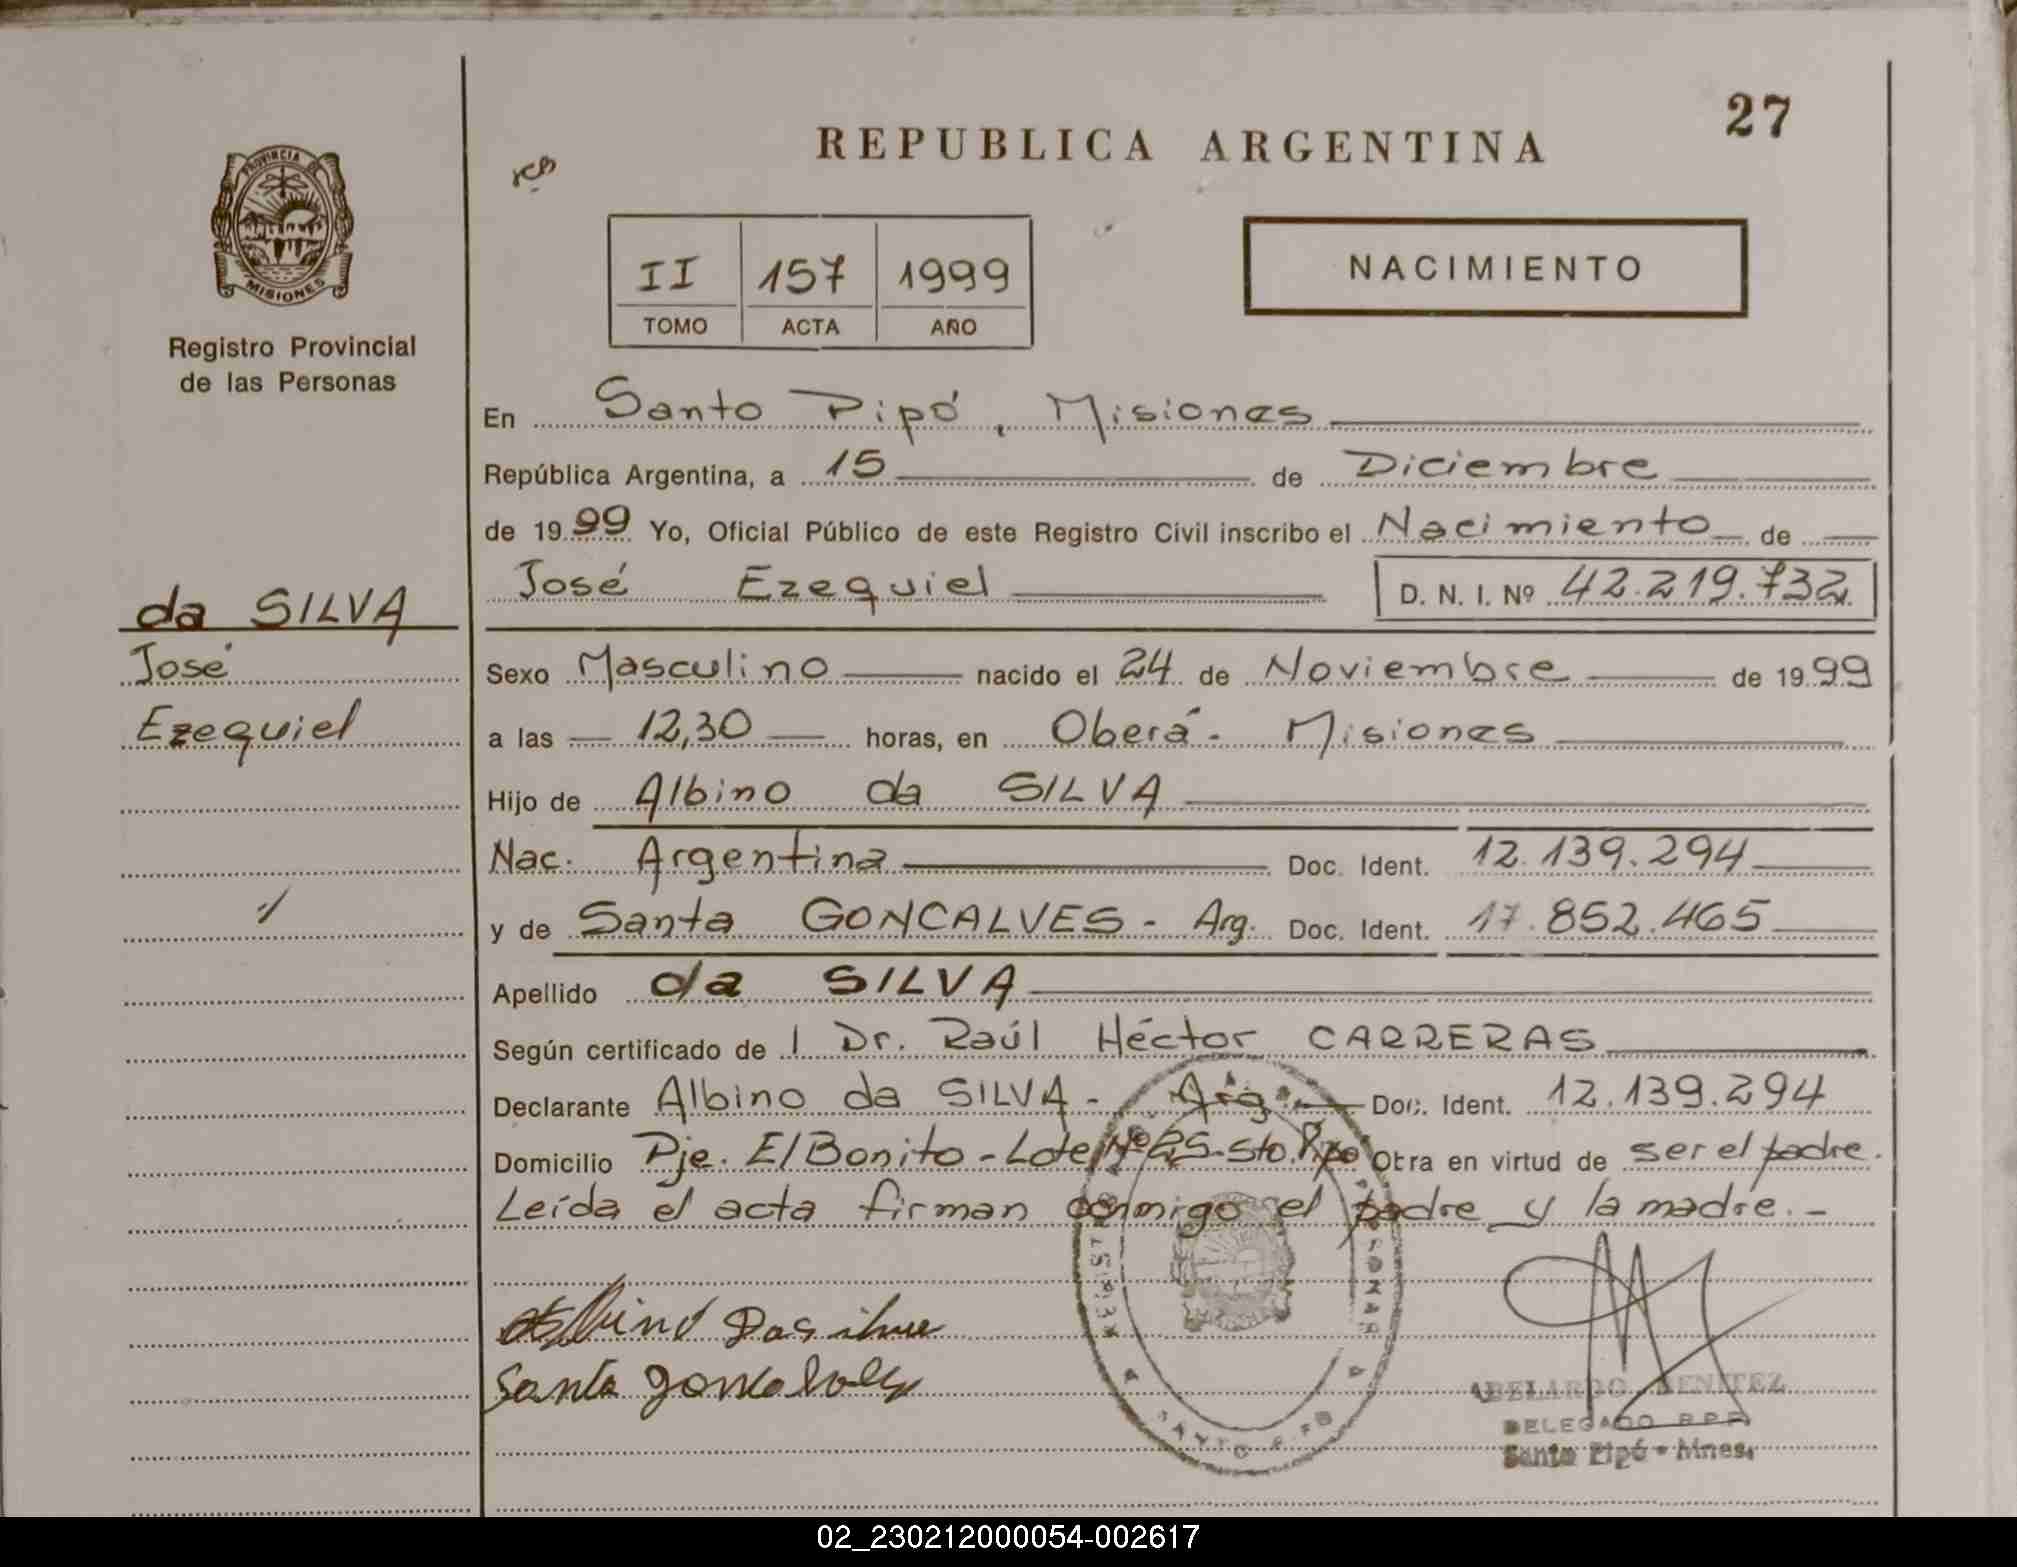 27
REPUBLICA ARGENTINA
PROVINCIA DE
MISIONES
Registro Provincial
de las Personas
II 157 1999
TOMO ACTA AÑO
NACIMIENTO
En Santo Pipó, Misiones
República Argentina, a 15 de Diciembre
de 1999 Yo, Oficial Público de este Registro Civil inscribo el Nacimiento de
José Ezequiel D. N. I. Nº 42.219.732
da SILVA
José
Ezequiel
Sexo Masculino nacido el 24 de Noviembre de 1999
a las 12,30 horas, en Oberá - Misiones
Hijo de Albino da SILVA
Nac. Argentina Doc. Ident. 12.139.294
y de Santa GONCALVES - Arg. Doc. Ident. 17.852.465
Apellido da SILVA
Según certificado de l Dr. Raúl Héctor CARRERAS
Declarante Albino da SILVA - Arg. Doc. Ident. 12.139.294
Domicilio Pje. El Bonito - Lote Nº 25 - Sto. Pipo Otra en virtud de ser el padre.
Leída el acta firman conmigo el padre y la madre. -
Albino Dasilva
Santa goncalves
SANTO PIPO
ABELARDO BENITEZ
DELEGADO R.P.P.
Santo Pipó - Mnes.
02_230212000054-002617